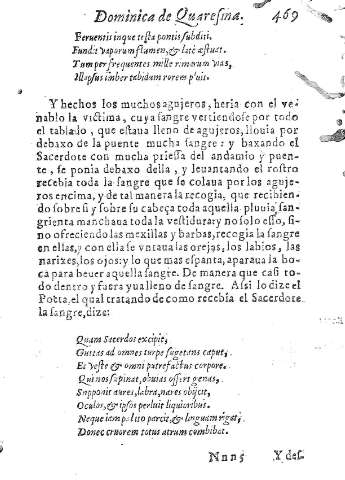 Dominica de Quaresma. 469
Feruentis inque testa pontis subditi.
Fundit vaporum flumen, & latè æstuat.
Tum per frequentes mille rimarum vias,
Illapsus imber tabidum rorem pluit.
Y hechos los muchos agujeros, heria con el ve-
nablo la victima, cuya sangre vertiendose por todo
el tablado, que estaua lleno de agujeros, llouia por
debaxo de la puente mucha sangre: y baxando el
Sacerdote con mucha priessa del andamio y puen-
te, se ponia debaxo della, y leuantando el rostro
recebia toda la sangre que se colaua por los aguje-
ros encima, y de tal manera la recogia, que recibien-
do sobre si y sobre su cabeça toda aquella pluuia san-
grienta manchaua toda la vestidura: y no solo esso, si-
no ofreciendo las mexillas y barbas, recogia la sangre
en ellas, y con ella se vntaua las orejas, los labios, las
narizes, los ojos: y lo que mas espanta, aparaua la bo-
ca para beuer aquella sangre. De manera que casi to-
do dentro y fuera yua lleno de sangre. Assi lo dize el
Poeta, el qual tratando de como recebia el Sacerdote
la sangre, dize:
Quam Sacerdos excipit,
Guttas ad omnes turpe subiectans caput,
Et veste & omni putrefactus corpore.
Quin os supinat, obuias offert genas,
Supponit aures, labra, nares obijcit,
Oculos, & ipsos perluit liquoribus.
Neque iam palato parcit, & linguam rigat,
Donec cruorem totus atrum combibat.
Nnn 5 Y des-